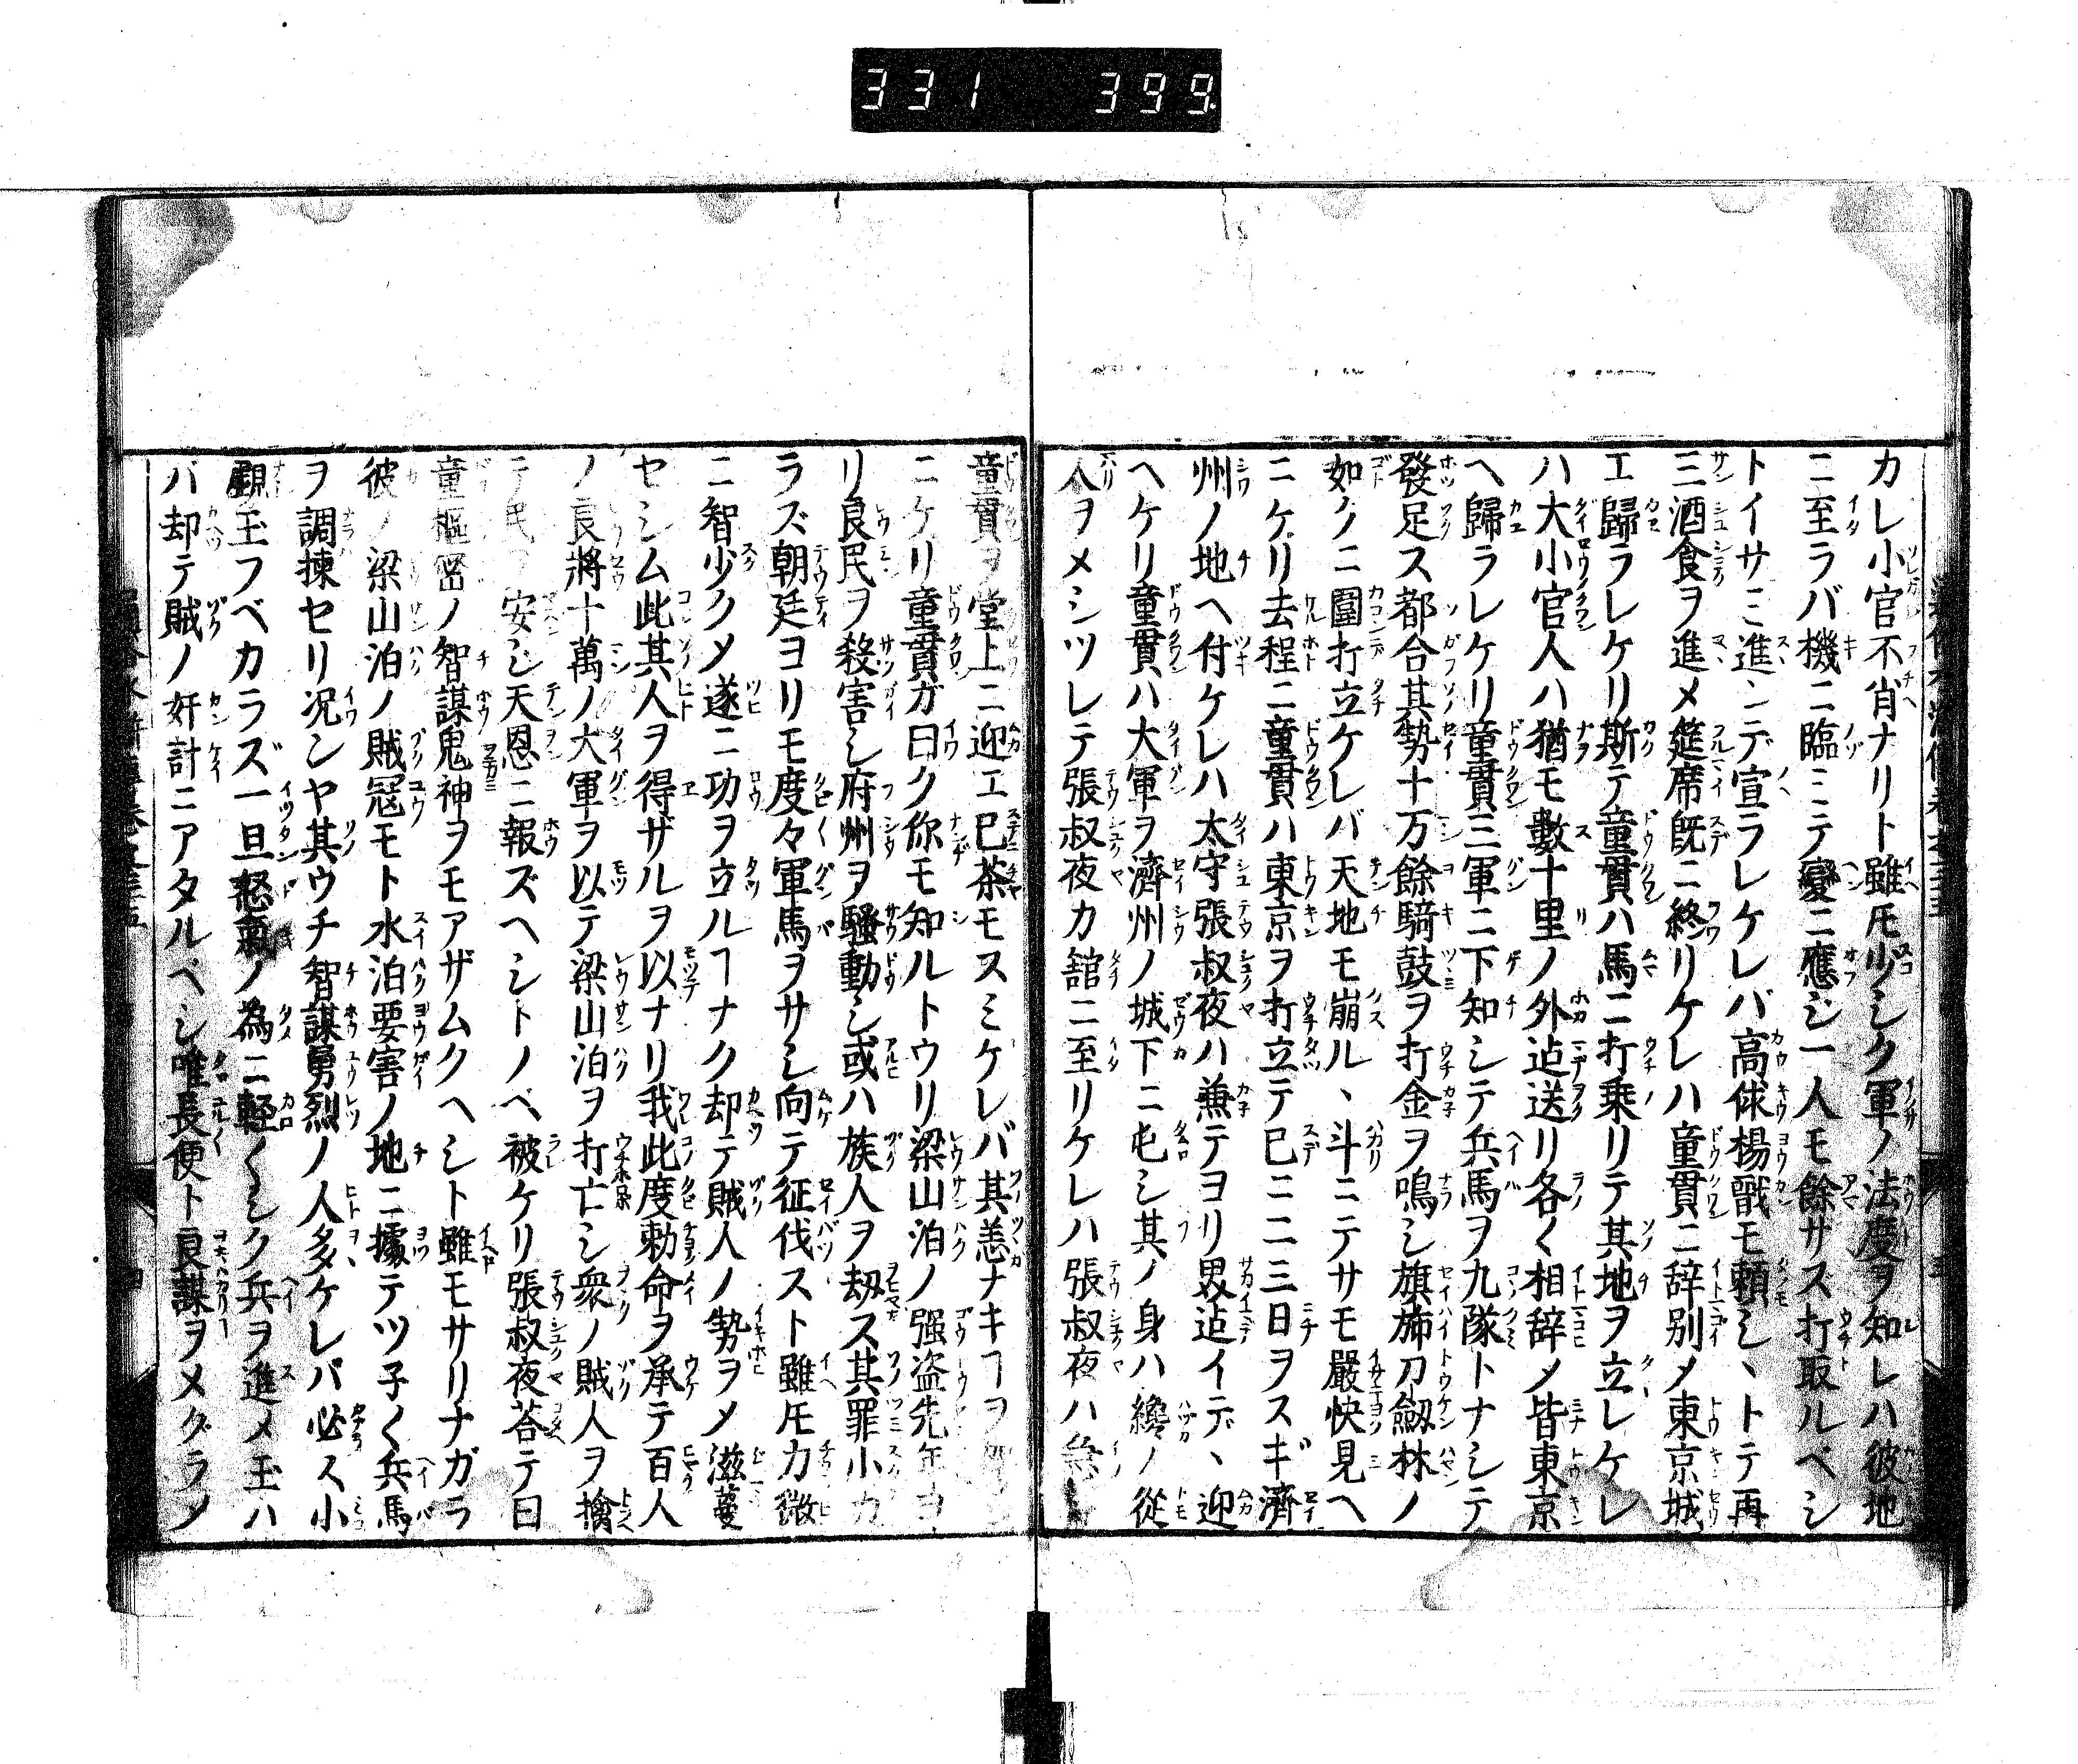 331 399
カレ小官不肖ナリト雖𪜈少シク軍ノ法度ヲ知レハ彼地
ニ至ラバ機ニ臨ミテ變ニ應ジ一人モ餘サズ打取ルベシ
トイサミ進ンデ宣ラレケレバ高俅楊戩モ頼シヽトテ再
三酒食ヲ進メ筵席既ニ終リケレハ童貫ニ辞別メ東京城
エ歸ラレケリ斯テ童貫ハ馬ニ打乗リテ其地ヲ立レケレ
ハ大小官人ハ猶モ數十里ノ外迠送リ各〱相辞メ皆東京
ヘ歸ラレケリ童貫三軍ニ下知シテ兵馬ヲ九隊トナシテ
發足ス都合其勢十万餘騎鼓ヲ打金ヲ鳴シ旗旆刀劔林ノ
如クニ圍打立ケレバ天地モ崩ルヽ斗ニテサモ嚴快見ヘ
ニケリ去程ニ童貫ハ東京ヲ打立テ已ニ二三日ヲスギ濟
州ノ地ヘ付ケレハ太守張叔夜ハ兼テヨリ界迠イデヽ迎
ヘケリ童貫ハ大軍ヲ濟州ノ城下ニ屯シ其ノ身ハ纔ノ從
人ヲメシツレテ張叔夜カ舘ニ至リケレハ張叔夜ハ急
童貫ヲ堂上ニ迎エ已茶モスミケレバ其恙ナキヿヲ
ニケリ童貫ガ曰ク你モ知ルトウリ梁山泊ノ强盗先年ヨ
リ良民ヲ殺害シ府州ヲ騷動シ或ハ族人ヲ刼ス其罪小カ
ラズ朝廷ヨリモ度々軍馬ヲサシ向テ征伐スト雖𪜈力微
ニ智少クメ遂ニ功ヲ立ルヿナク却テ賊人ノ勢ヲメ滋蔓
セシム此其人ヲ得ザルヲ以ナリ我此度勅命ヲ承テ百人
ノ良將十萬ノ大軍ヲ以テ梁山泊ヲ打亡シ衆ノ賊人ヲ擒
テ民ヲ安シ天恩ニ報ズヘシトノベ被ケリ張叔夜荅テ曰
童樞密ノ智謀鬼神ヲモアザムクヘシト雖モサリナガラ
彼ノ梁山泊ノ賊冦モト水泊要害ノ地ニ據テツ子〱兵馬
ヲ調揀セリ况ンヤ其ウチ智謀勇烈ノ人多ケレバ必ス小
覷玉フベカラズ一旦怒氣ノ為ニ輕〱シク兵ヲ進メ玉ハ
バ却テ賊ノ奸計ニアタルベシ唯長便ト良謀ヲメグラメ